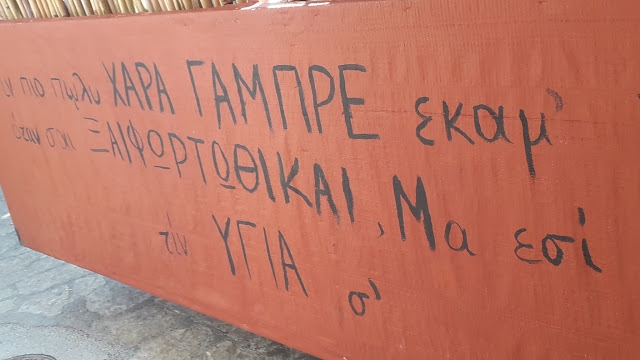 πιο πολυ ΧΑΡΑ ΓΑΜΠΡΕ εκαμ'
όταν σσι ΞΑΙΦΩΡΤΩΘΙΚΑΙ, Μα εσί
τιν ΥΓΙΑ σ'